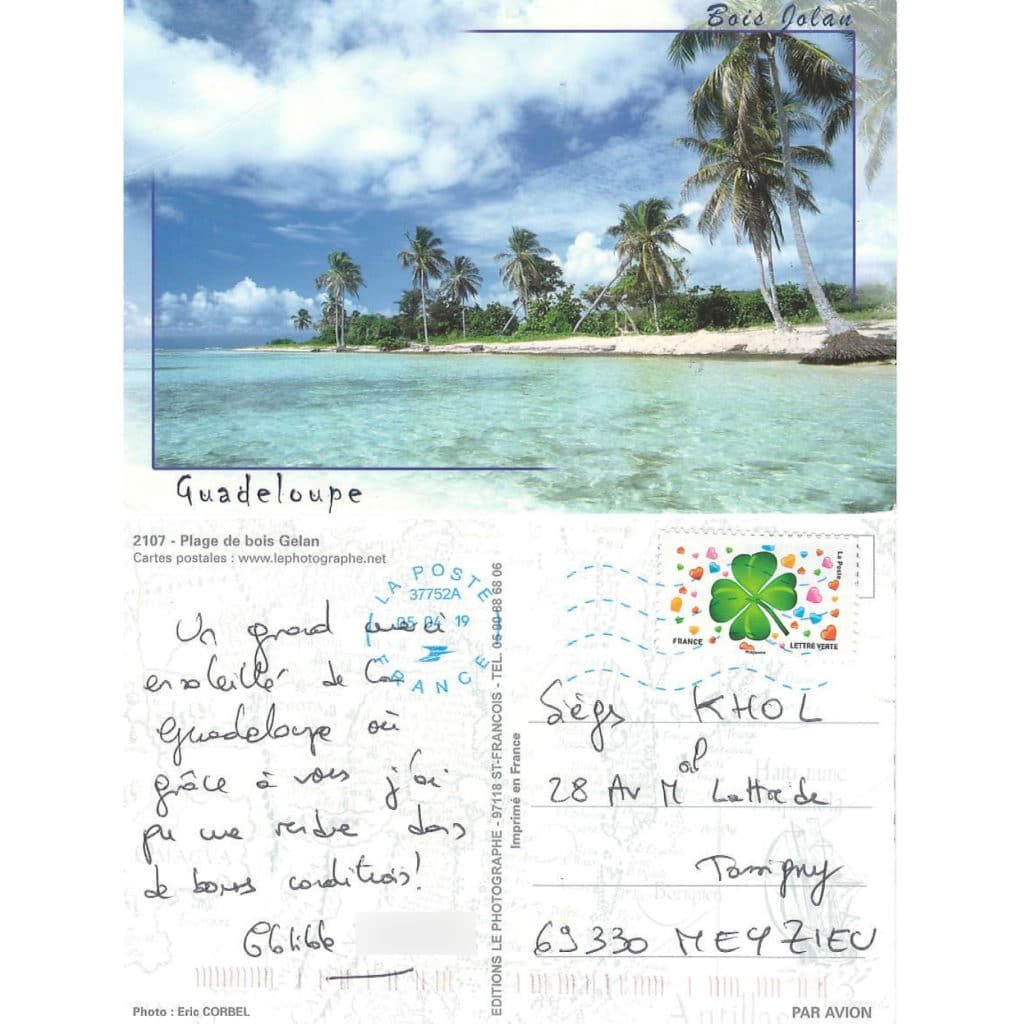 Bois Jolan
Guadeloupe
2107 - Plage de bois Gelan
Cartes postales : www.lephotographe.net
LA POSTE
37752A
05 04 19
FRANCE
Un grand merci
ensoleillé de la
Guadeloupe où
grâce à vous j'ai
pu me rendre dans
de bonnes conditions!
EDITIONS LE PHOTOGRAPHE - 97118 ST-FRANCOIS - TEL. 05 90 88 68 06
Imprimé en France
La Poste
FRANCE
LETTRE VERTE
Siège KHOL
28 Av Mal Lattre de
Tassigny
69330 MEYZIEU
Photo : Eric CORBEL
PAR AVION